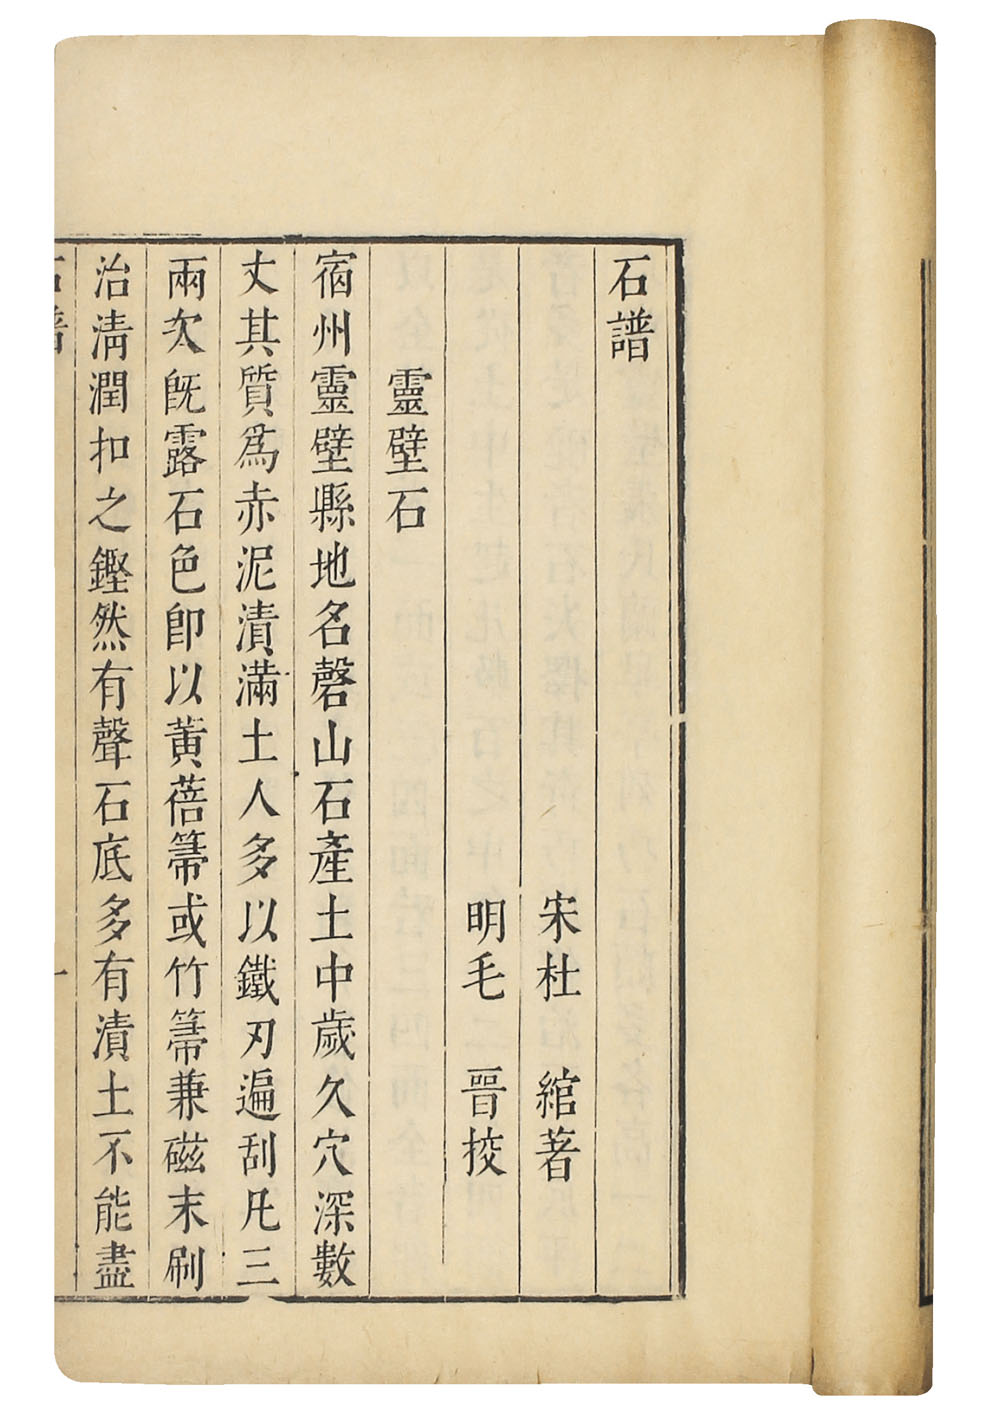 石譜
宋杜 綰著
明毛 晉挍
靈壁石
宿州靈壁縣地名磬山石產土中歲久穴深數
丈其質爲赤泥漬滿土人多以鐵刃遍刮凡三
兩次旣露石色卽以黃蓓箒或竹箒兼磁末刷
治清潤扣之鏗然有聲石底多有漬土不能盡
石譜 一